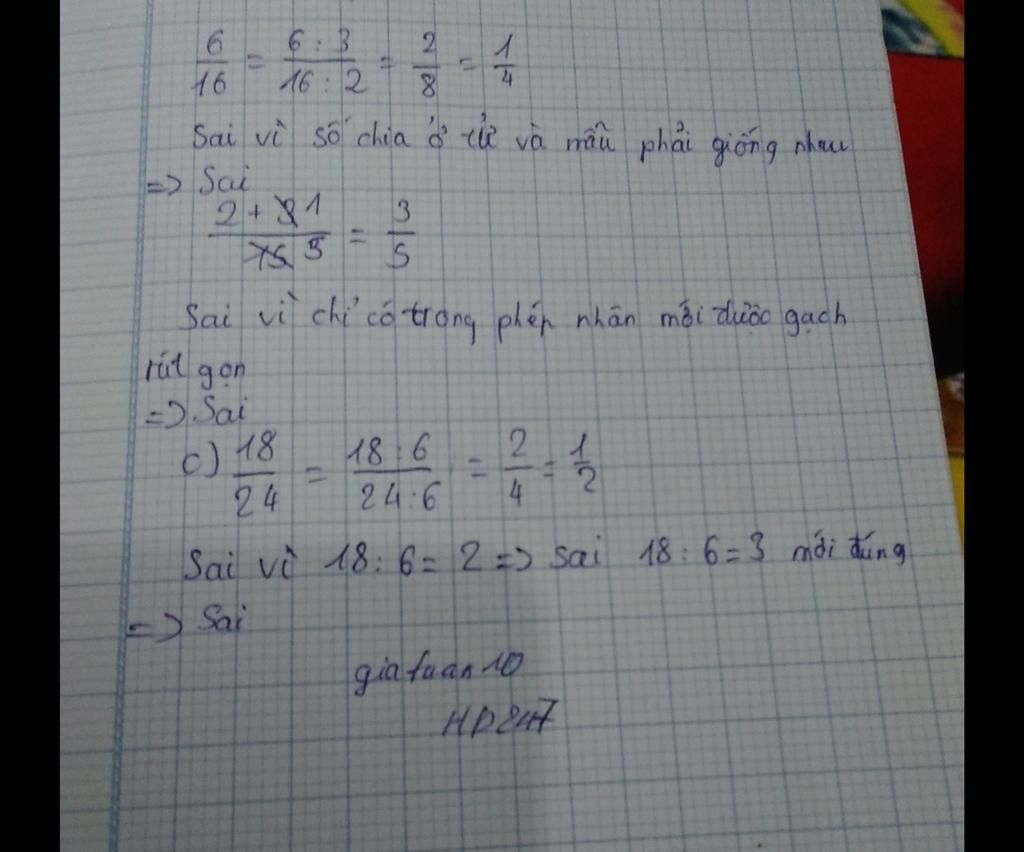 6/16 = 6 : 3/16 : 2 = 2/8 = 1/4
Sai vì số chia ở tử và mẫu phải giống nhau
=> Sai
2 + 3 1/15 5 = 3/5
Sai vì chỉ có trong phép nhân mới được gạch
rút gọn
=> Sai
c) 18/24 = 18 : 6/24 : 6 = 2/4 = 1/2
Sai vì 18 : 6 = 2 => Sai 18 : 6 = 3 mới đúng
=> Sai
giatuan10
HD847